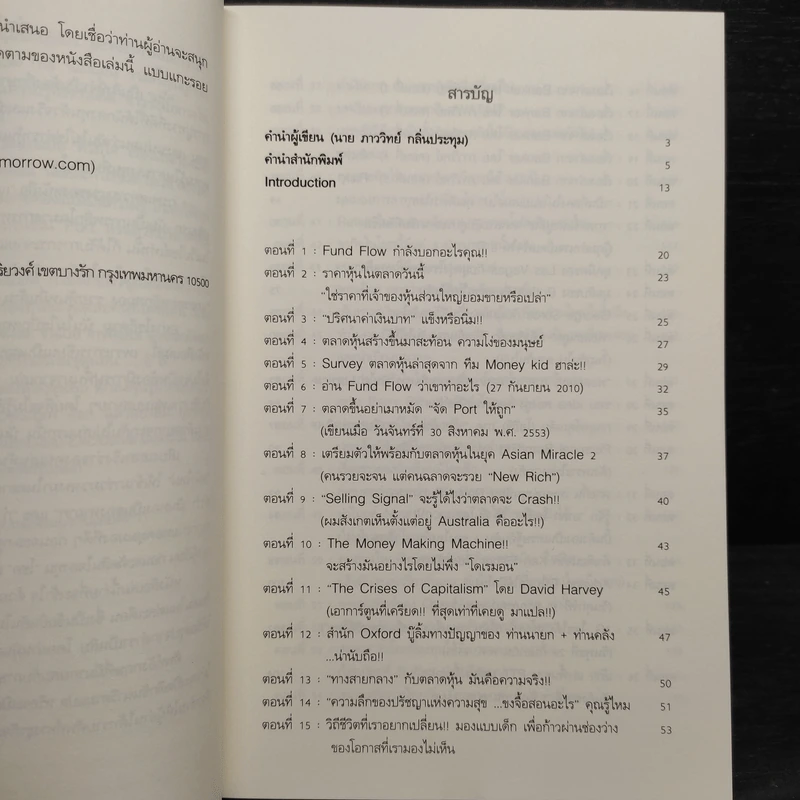 นำเสนอ โดยเชื่อว่าท่านผู้อ่านจะสนุก
ตามของหนังสือเล่มนี้ แบบแกะรอย
morrow.com)
วงศ์ เขตบางรัก กรุงเทพมหานคร 10500
สารบัญ
คำนำผู้เขียน (นาย ภาววิทย์ กลิ่นประทุม) 3
คำนำสำนักพิมพ์ 5
Introduction 13
ตอนที่ 1 : Fund Flow กำลังบอกอะไรคุณ!! 20
ตอนที่ 2 : ราคาหุ้นในตลาดวันนี้ 23
"ใช่ราคาที่เจ้าของหุ้นส่วนใหญ่ยอมขายหรือเปล่า"
ตอนที่ 3 : "ปริศนาค่าเงินบาท" แข็งหรือนิ่ม!! 25
ตอนที่ 4 : ตลาดหุ้นสร้างขึ้นมาสะท้อน ความโง่ของมนุษย์ 27
ตอนที่ 5 : Survey ตลาดหุ้นล่าสุดจาก ทีม Money kid ฮาล่ะ!! 29
ตอนที่ 6 : อ่าน Fund Flow ว่าเขาทำอะไร (27 กันยายน 2010) 32
ตอนที่ 7 : ตลาดขึ้นอย่าเมาหมัด "จัด Port ให้ถูก" 35
(เขียนเมื่อ วันจันทร์ที่ 30 สิงหาคม พ.ศ. 2553)
ตอนที่ 8 : เตรียมตัวให้พร้อมกับตลาดหุ้นในยุค Asian Miracle 2 37
(คนรวยจะจน แต่คนฉลาดจะรวย "New Rich")
ตอนที่ 9 : "Selling Signal" จะรู้ได้ไงว่าตลาดจะ Crash!! 40
(ผมสังเกตเห็นตั้งแต่อยู่ Australia คืออะไร!!)
ตอนที่ 10 : The Money Making Machine!! 43
จะสร้างมันอย่างไรโดยไม่พึ่ง "โดเรมอน"
ตอนที่ 11 : "The Crises of Capitalism" โดย David Harvey 45
(เอาการ์ตูนที่เครียด!! ที่สุดเท่าที่เคยดู มาแปล!!)
ตอนที่ 12 : สำนัก Oxford บู๊ลิ้มทางปัญญาของ ท่านนายก + ท่านคลัง 47
...น่านับถือ!!
ตอนที่ 13 : "ทางสายกลาง" กับตลาดหุ้น มันคือความจริง!! 50
ตอนที่ 14 : "ความลึกของปรัชญาแห่งความสุข ...ขงจื้อสอนอะไร" คุณรู้ไหม 51
ตอนที่ 15 : วิถีชีวิตที่เราอยากเปลี่ยน!! มองแบบเด็ก เพื่อก้าวผ่านช่องว่าง 53
ของโอกาสที่เรามองไม่เห็น